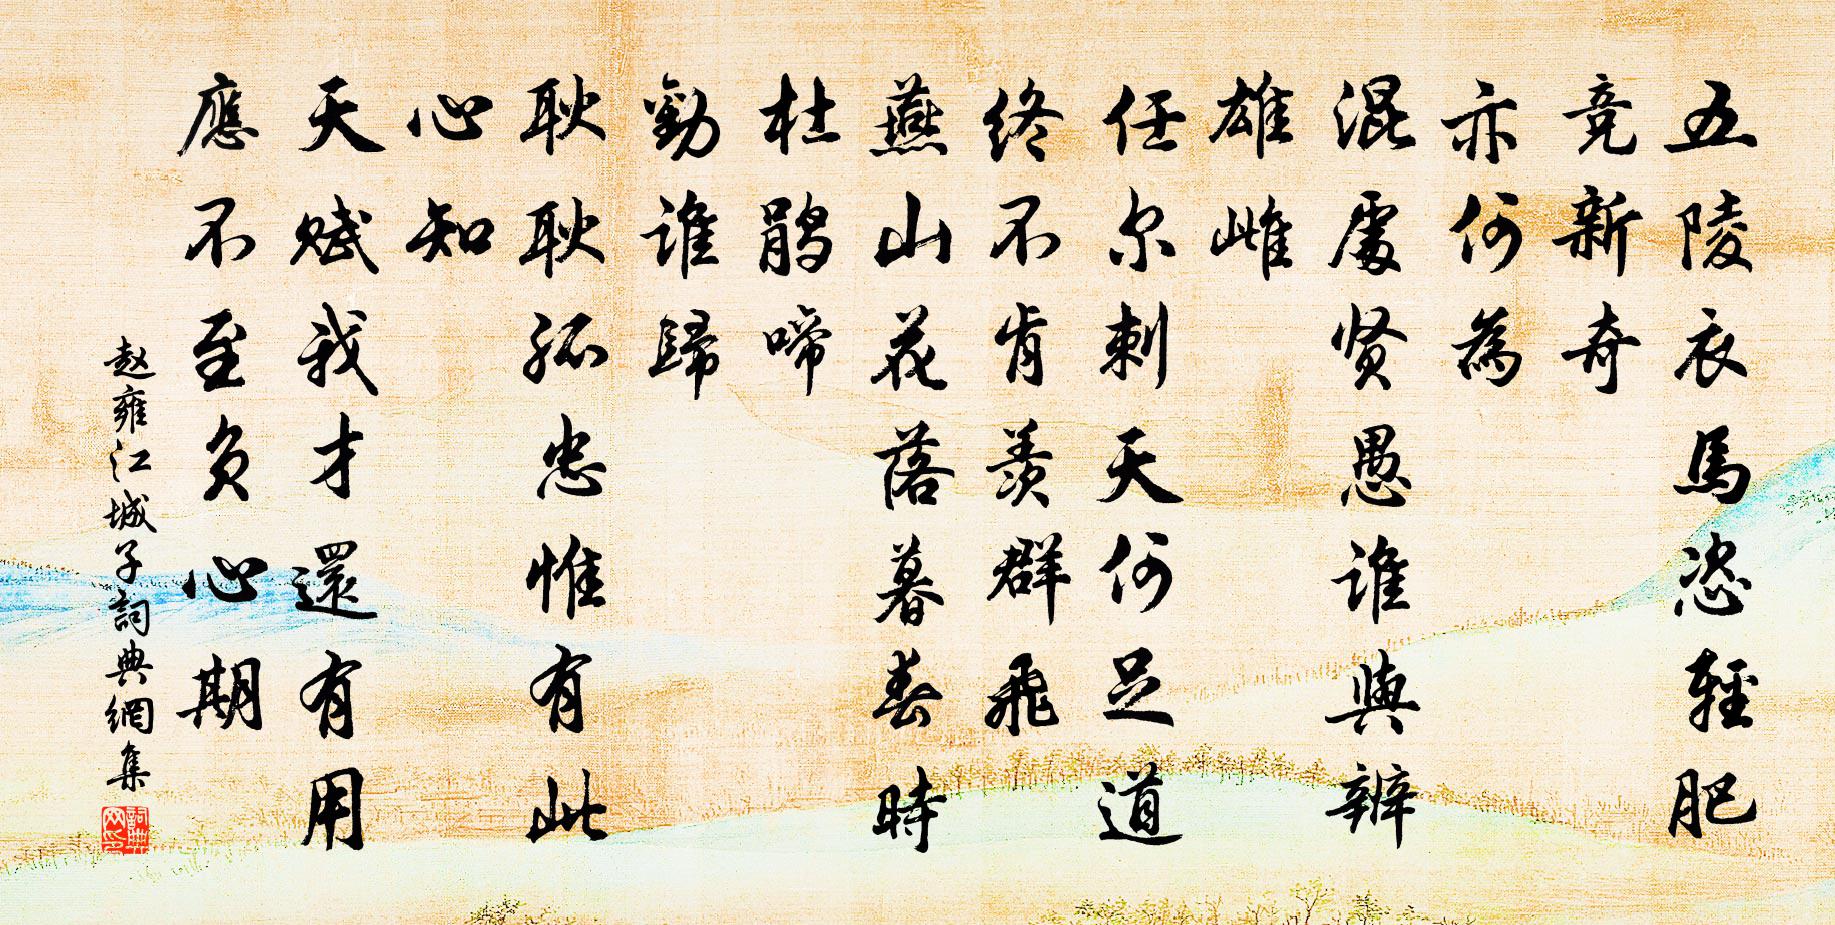 五陵衣馬恣輕肥
竞新奇
亦何為
混處贤愚谁與辨
雄雌
任尔刺天何足道
终不肯羡群飛
燕山花落暮春時
杜鹃啼
勸谁歸
耿耿孤忠惟有此
心知
天赋我才還有用
應不至负心期
赵雍江城子詞典網集